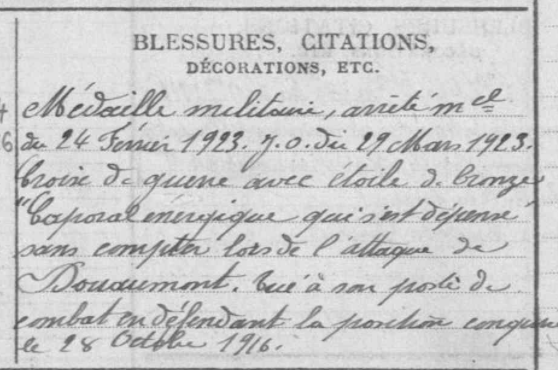 BLESSURES, CITATIONS,
DÉCORATIONS, ETC.
Médaille militaire, arrêté mel
du 24 Février 1923. J.O. du 29 Mars 1923.
Croix de guerre avec étoile de bronze
"Caporal énergique qui s'est dépensé
sans compter lors de l'attaque de
Douaumont. Tué à son poste de
combat en défendant la position conquise
le 28 Octobre 1916.